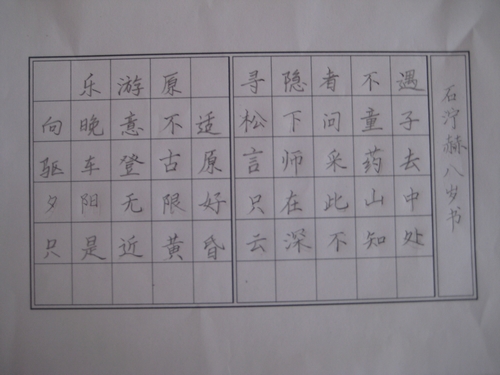 乐游原
向晚意不适
驱车登古原
夕阳无限好
只是近黄昏
寻隐者不遇
松下问童子
言师采药去
只在此山中
云深不知处
石泞赫八岁书